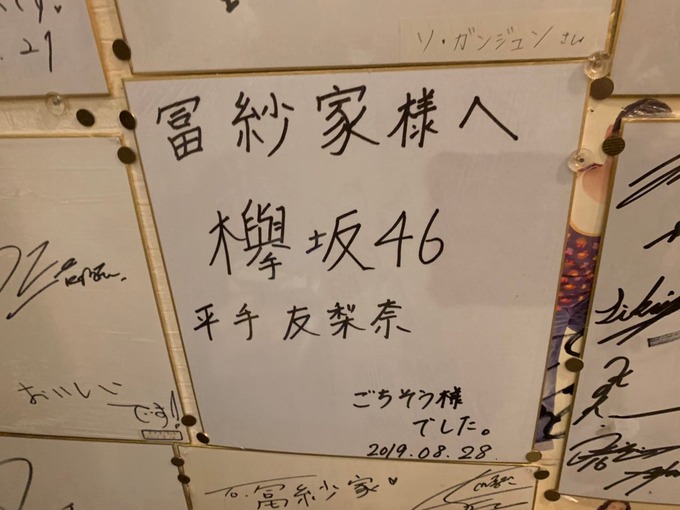 ソ・ガンジュンさん
冨紗家様へ
欅坂46
平手友梨奈
ごちそう様
でした。
2019.08.28.
おいしい
です!
To.冨紗家